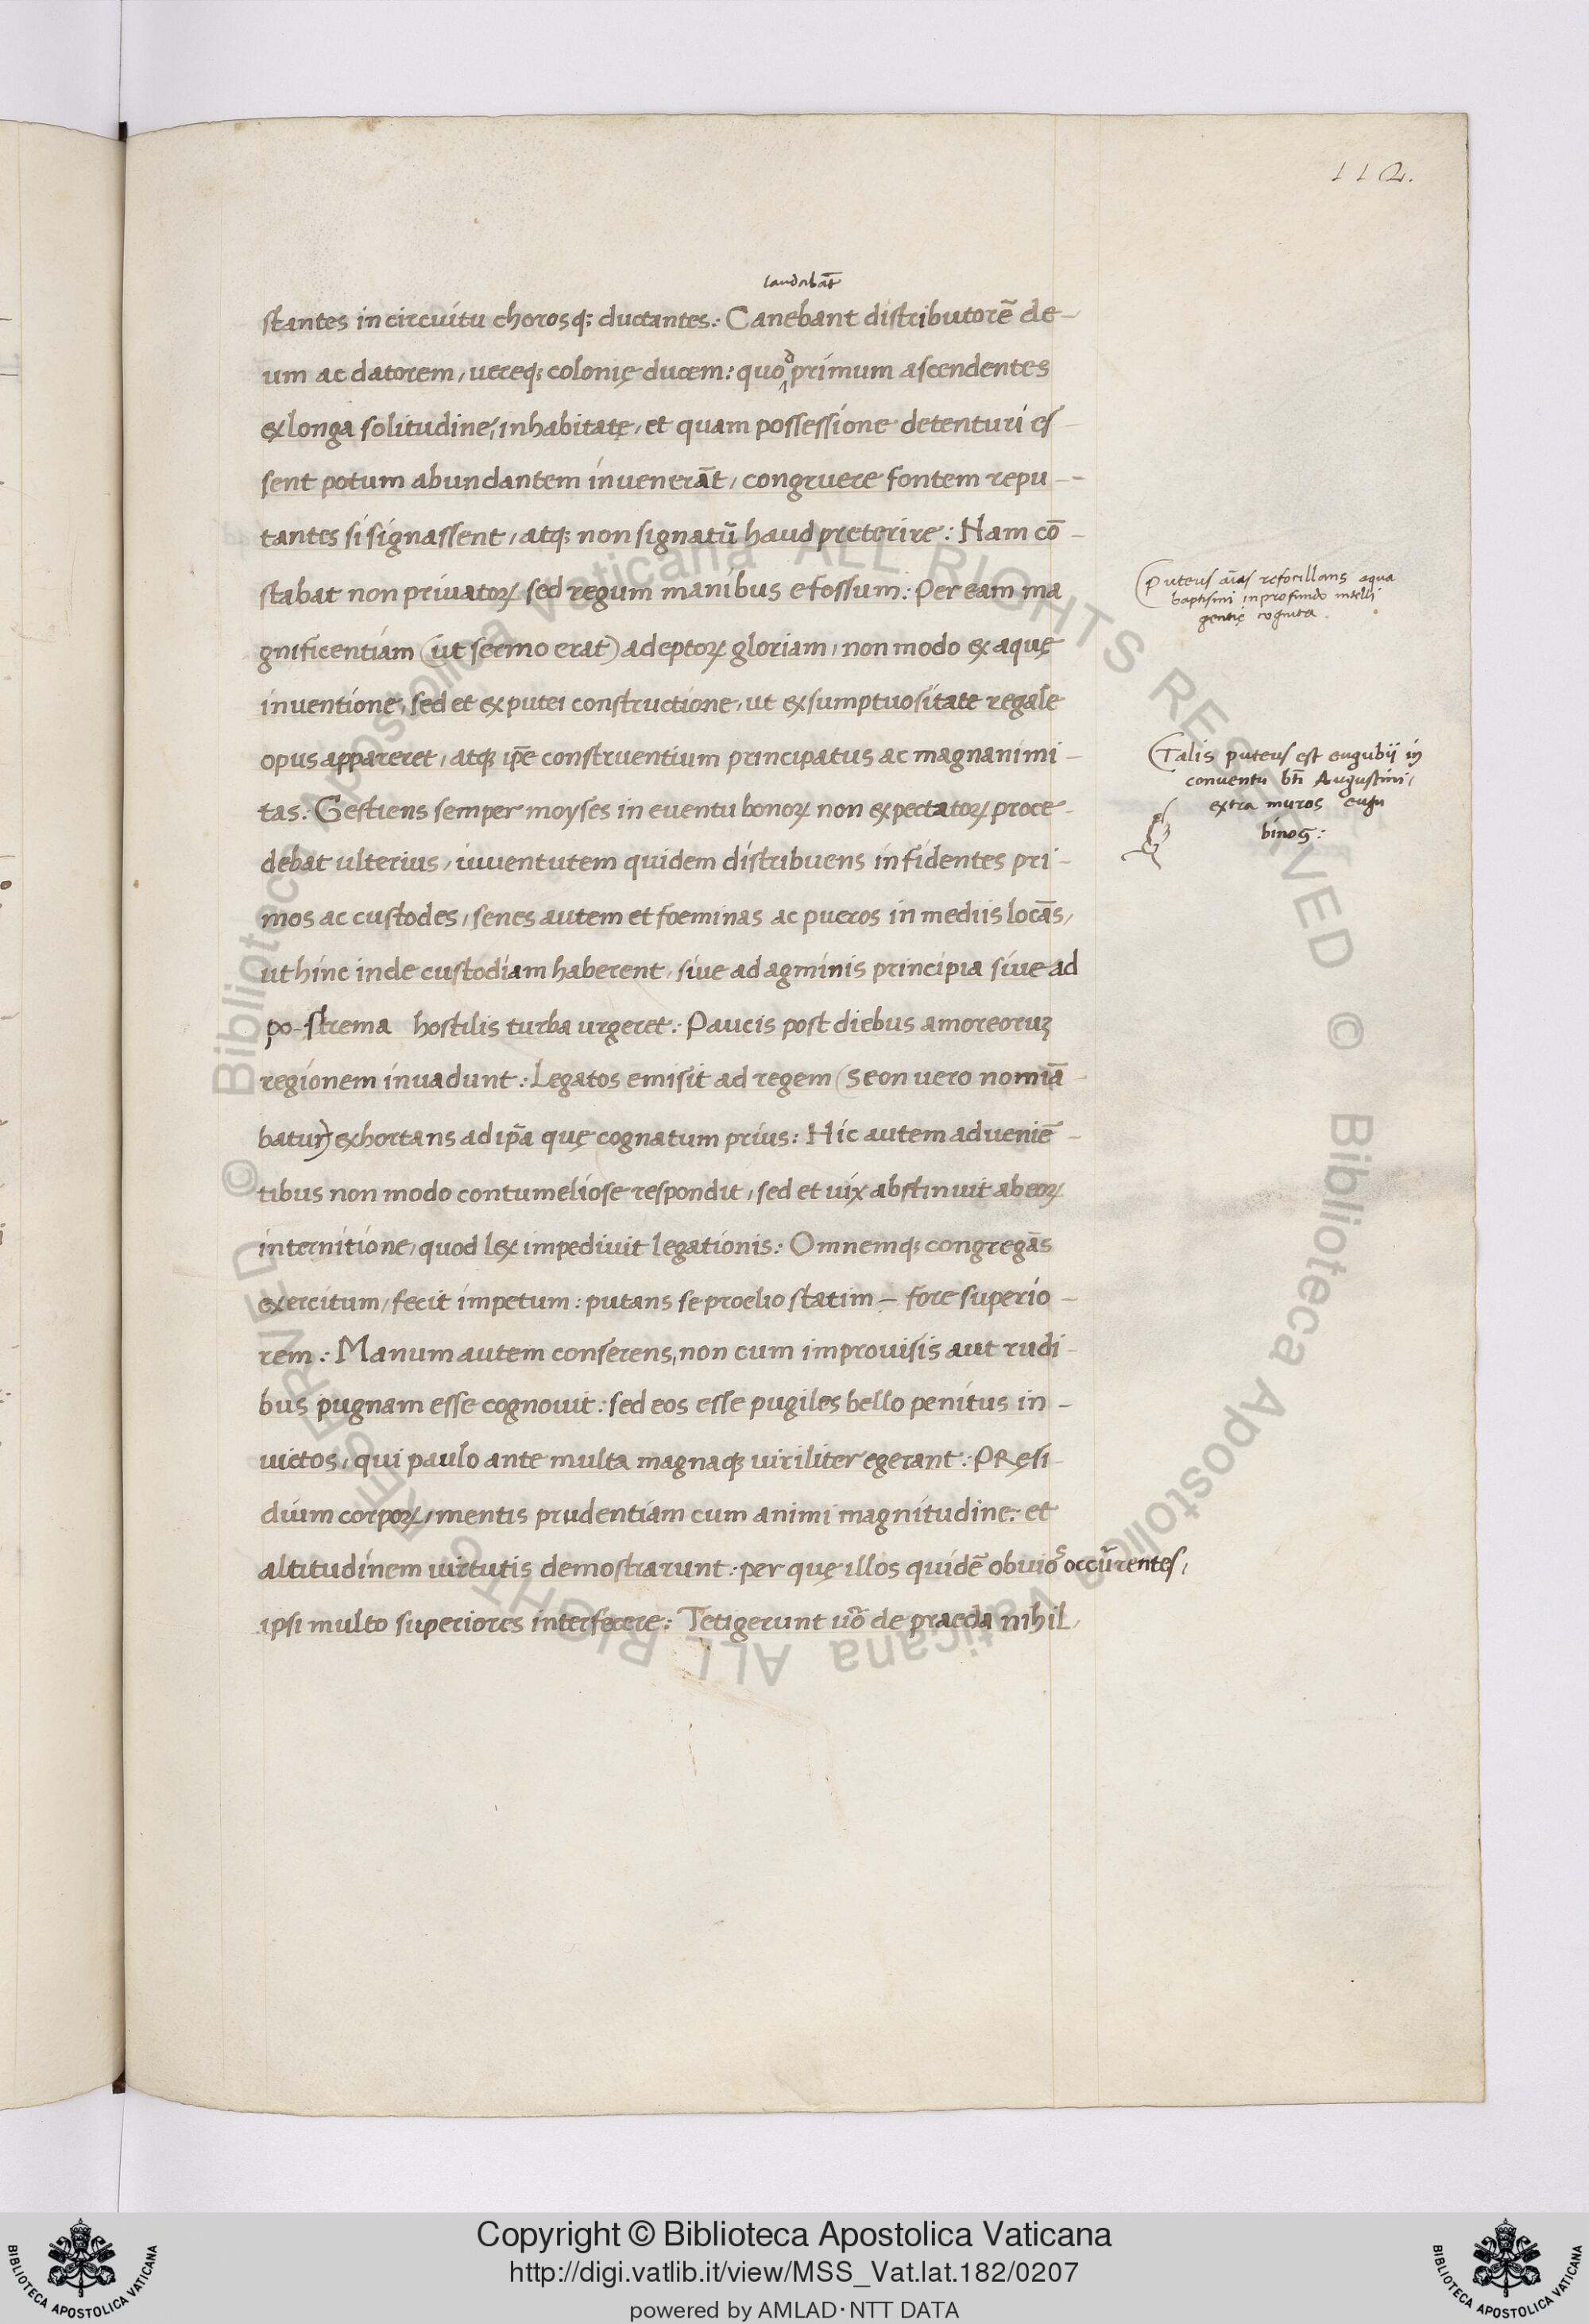 112.
laudabat̄
stantes in circuitu chorosq; ductantes: Canebant distributorē de-
um ac datorem, uereq; colonię ducem: quod primum ascendentes
ex longa solitudine, inhabitatę, et quam possessione detenturi es
sent potum abundantem inuenerāt, congruere fontem repu-
tantes si signassent, atq; non signatū haud preterire: Nam cō-
stabat non priuatoꝝ sed regum manibus efossum: Per eam ma
gnificentiam (ut sermo erat) adeptoꝝ gloriam, non modo ex aquę
inuentione, sed et ex putei constructione, ut ex sumptuositate regale
opus appareret, atq; ip̄e construentium principatus ac magnanimi-
tas: Gestiens semper moyses in euentu bonoꝝ non expectatoꝝ proce-
debat ulterius, iuuentutem quidem distribuens in fidentes pri-
mos ac custodes, senes autem et foeminas ac pueros in mediis locās,
ut hinc inde custodiam haberent, siue ad agminis principia siue ad
po-strema hostilis turba urgeret: Paucis post diebus amoreoruꝫ
regionem inuadunt: Legatos emisit ad regem (Seon uero nomīa-
batur) exhortans ad ip̄a quę cognatum prius: Hic autem adueniē-
tibus non modo contumeliose respondit, sed et uix abstinuit ab eoꝝ
internitione, quod lex impediuit legationis: Omnemq; congregās
exercitum, fecit impetum: putans se proelio statim - fore superio-
rem: Manum autem conserens, non cum improuisis aut rudi-
bus pugnam esse cognouit: sed eos esse pugiles bello penitus in-
uictos, qui paulo ante multa magnaq; uiriliter egerant: PRęsi-
dium corpoꝝ, mentis prudentiam cum animi magnitudine: et
altitudinem uirtutis demostrarunt: per quę illos quidē obuios occūrentes,
ipsi multo superiores interfecere: Tetigerunt uō de praeda nihil,
Puteus aīas refocillans aqua
baptismi in profundo intelli
gentię cognita.
Talis puteus est eugubii in
conuentu bti Augustini,
extra muros eugu
binos:
© Biblioteca Apostolica Vaticana ALL RIGHTS RESERVED © Biblioteca Apostolica Vaticana ALL RIGHTS RESERVED
Copyright © Biblioteca Apostolica Vaticana
http://digi.vatlib.it/view/MSS_Vat.lat.182/0207
powered by AMLAD·NTT DATA
BIBLIOTECA APOSTOLICA VATICANA
BIBLIOTECA APOSTOLICA VATICANA